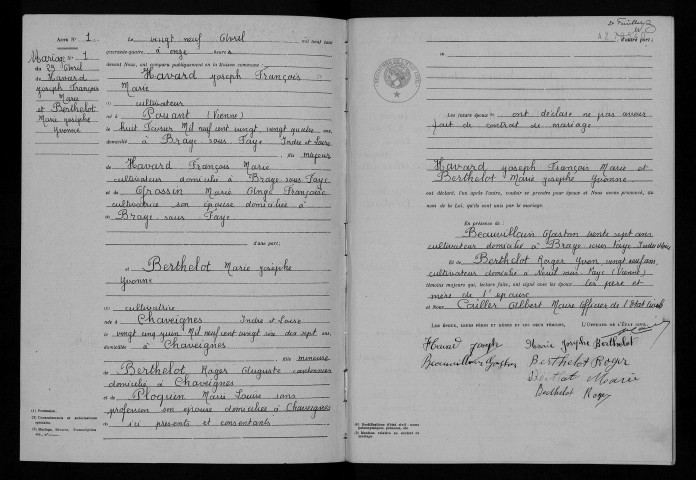 Acte N° 1
Mariage N° 1
du 29 Avril
de Havard
Joseph François
Marie
et Berthelot
Marie Josèphe
Yvonne
Le vingt neuf Avril mil neuf cent
quarante-quatre à onze heures
devant Nous, ont comparu publiquement en la Maison commune :
Havard Joseph François
Marie
(1) cultivateur
né à Pouant (Vienne)
le huit Février Mil neuf cent vingt, vingt quatre ans,
domicilié à Braye sous Faye Indre et Loire
fils majeur
de Havard François Marie
cultivateur domicilié à Braye sous Faye
et de Grossin Marie Ange Françoise
cultivatrice son épouse domiciliée à
Braye sous Faye
d'une part;
Et Berthelot Marie Josèphe
Yvonne
(1) cultivatrice
née à Chaveignes Indre et Loire
le vingt cinq juin Mil neuf cent vingt six dix sept ans,
domiciliée à Chaveignes
fille mineure
de Berthelot Roger Auguste cantonnier
domicilié à Chaveignes
et de Ploquin Marie Louise sans
profession son épouse domiciliée à Chaveignes
ici présents et consentants
(1) Profession.
(2) Consentements et autorisations
spéciales.
2e Feuillet
d'autre part;
Les futurs époux ont déclaré ne pas avoir
fait de contrat de mariage
Havard Joseph François Marie et
Berthelot Marie Josèphe Yvonne
ont déclaré, l'un après l'autre, vouloir se prendre pour époux et Nous avons prononcé, au
nom de la Loi, qu'ils sont unis par le mariage.
En présence de :
Beauvillain Gaston trente sept ans
cultivateur domicilié à Braye sous Faye Indre et Loire
Et de Berthelot Roger Yvon vingt neuf ans,
cultivateur domicilié à Nueil sous Faye (Vienne)
témoins majeurs qui, lecture faite, ont signé avec les époux les père et
mère de l'épouse
et Nous Cailler Albert Maire Officier de l'Etat Civil
Les époux, leurs pères et mères et les dits témoins, L'Officier de l'État civil,
Havard Joseph Marie Josèphe Berthelot
Beauvillain Gaston Berthelot Roger
Marie
Berthelot Roger